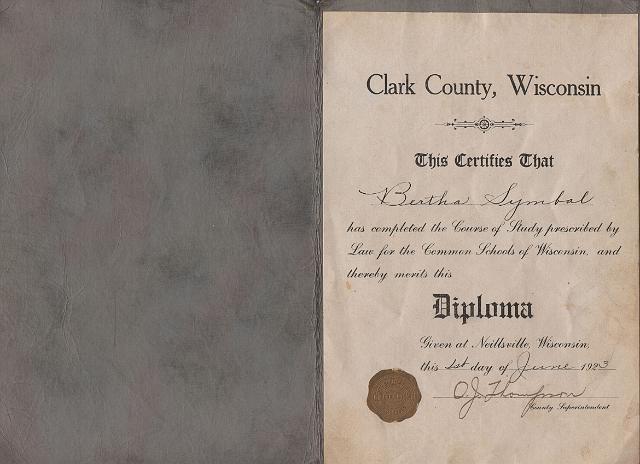 Clark County, Wisconsin
This Certifies That
Bertha Symbal
has completed the Course of Study prescribed by
Law for the Common Schools of Wisconsin, and
thereby merits this
Diploma
Given at Neillsville, Wisconsin,
this 1st day of June 1923
O.J. Thompson
County Superintendent